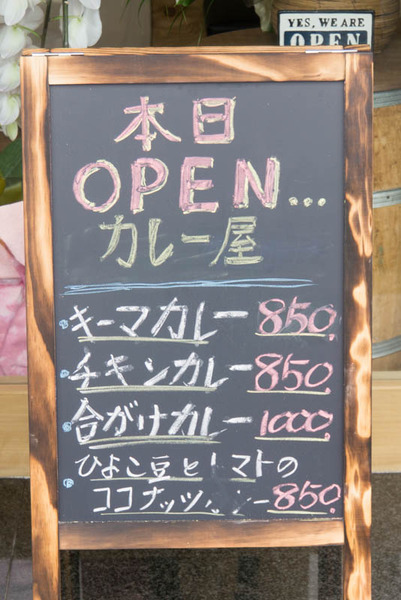 YES, WE ARE
OPEN
本日
OPEN...
カレー屋
キーマカレー 850.
チキンカレー 850.
合がけカレー 1000.
ひよこ豆と マトの
ココナッツ 850.